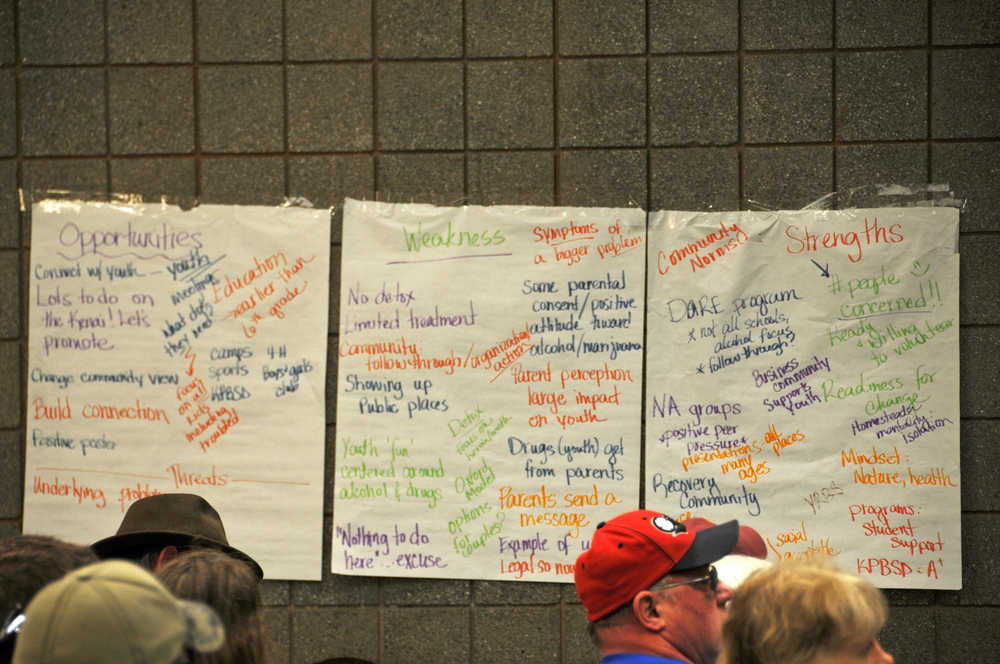 Opportunities
Connect w/ youth
youth
meetings
what did
they need
Education
earlier than
6th grade
Lots to do on
the Kenai! Let's
promote
Focus
on all
kids
including
troubled
camps
sports
KPBSD
4-H
Boys+girls
club
Change community view
Build connection
Positive poster
Threats
Underlying problem
Weakness
Symptoms of
a bigger problem
No detox
Limited treatment
Community:
followthrough/organizational
action
Showing up
Public places
Youth 'fun'
centered around
alcohol & drugs
"Nothing to do
here"...excuse
Detox
Model
options
for couples?
Some parental
consent/positive
attitude toward
alcohol/marijuana
Parent perception
large impact
on youth
Drugs (youth) get
from parents
Parents send a
message
Example of
Legal so now
Community
Norms
Strengths
DARE program
* not all schools,
alcohol focus
* followthrough?
Business
community
Support
Youth
NA groups
*positive peer
pressure
presentations all places
many
ages
Recovery
community
YRBS
social
# people
concerned!!
Ready & willing
to volunteer
Readiness for
change
Homestead
mentality
isolation
Mindset:
Nature, health
programs:
Student
Support
KPBSD = A+